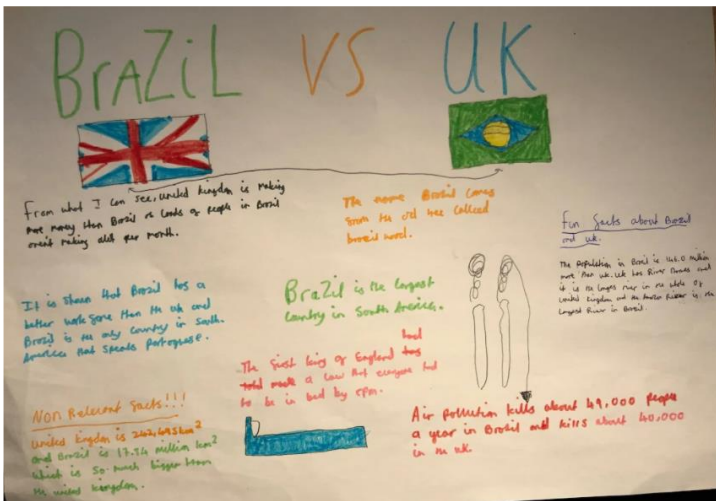 BrAZiL VS UK
From what I can see, united kingdom is making
more money than Brazil as loads of people in Brazil
arent making alot per month.
The name Brazil comes
from the old tree called
brazil wood.
fun facts about Brazil
and uk.
The population in Brazil is million
more than uk. uk has River and
it is the longes river in the whole of
united kingdom and the River is the
Largest River in Brazil.
It is shown that Brazil has a
better work than the uk and
Brazil is the only country in South
America that speaks portuguese.
BraZil is the largest
country in South America.
The first king of England had
a law that everyone had
to be in bed by 8pm.
Non Relevent facts!!!
united kingdom is 242,495km²
and Brazil is million km²
which is so much bigger than
the united kingdom.
Air pollution kills about 49,000 people
a year in Brazil and kills about 40,000
in the uk.